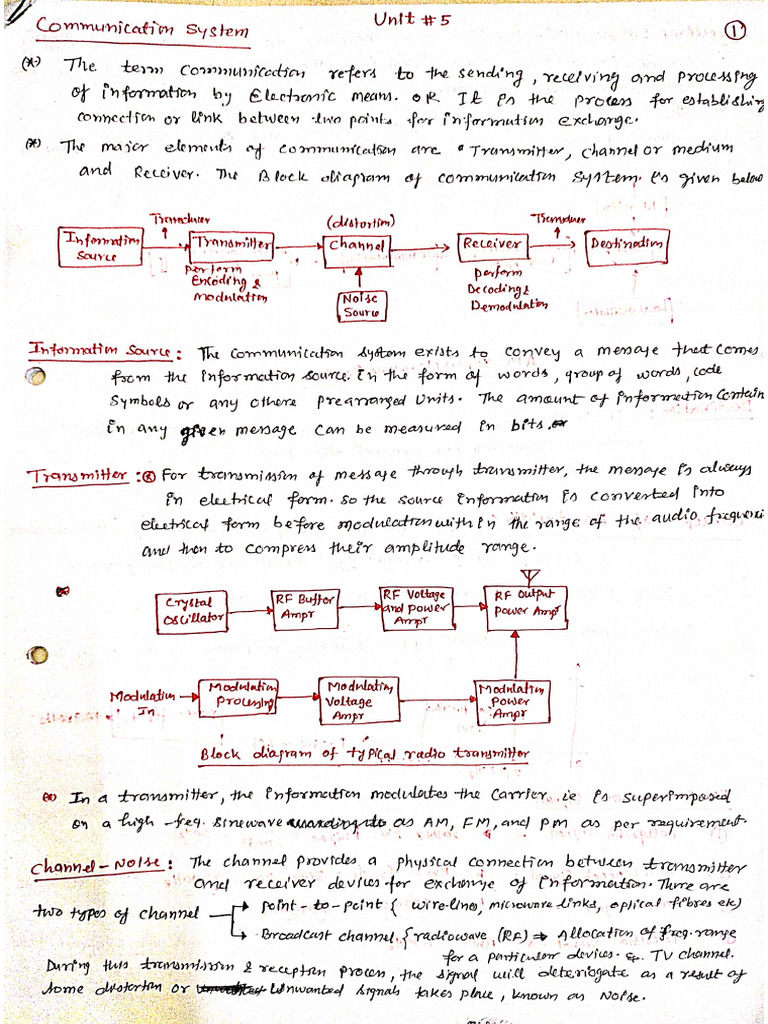 Unit # 5
Communication System
1
(*) The term communication refers to the sending, receiving and processing
of information by Electronic means. OR It is the process for establishing
connection or link between two points for information exchange.
(*) The major elements of communication are "Transmitter, channel or medium
and Receiver. The Block diagram of communication system. is given below
Transducer
(distortion)
Transducer
Information
Source
Transmitter
Channel
Receiver
Destination
perform
Encoding &
modulation
Noise
Source
perform
Decoding &
Demodulation
Information Source : The communication system exists to convey a message that comes
from the information source. in the form of words, group of words, code
symbols or any othere prearranged units. The amount of information contain
in any given message can be measured in bits.
Transmitter : (*) For transmission of message through transmitter, the message is always
in electrical form. so the source information is converted into
electrical form before modulation within the range of the audio frequencie
and then to compress their amplitude range.
Crystal
oscillator
RF Buffer
Ampr
RF Voltage
and power
Ampr
RF output
power Ampr
Modulation
In
Modulation
Processing
Modulation
Voltage
Ampr
Modulation
Power
Ampr
Block diagram of typical radio transmitter
(*) In a transmitter, the information modulates the carrier. ie is superimposed
on a high-freq. sinewave as AM, FM, and PM as per requirement.
Channel-Noise : The channel provides a physical connection between transmitter
and receiver devices for exchange of information. There are
two types of channel
point-to-point { wire-lines, microwave links, optical fibres etc)
Broadcast channel { radiowave (RF) ⇒ Allocation of freq. range
for a particular devices. TV channel.
During this transmission & reception process, the signal will deteriogate as a result of
some distortion or unwanted signals takes place, known as Noise.